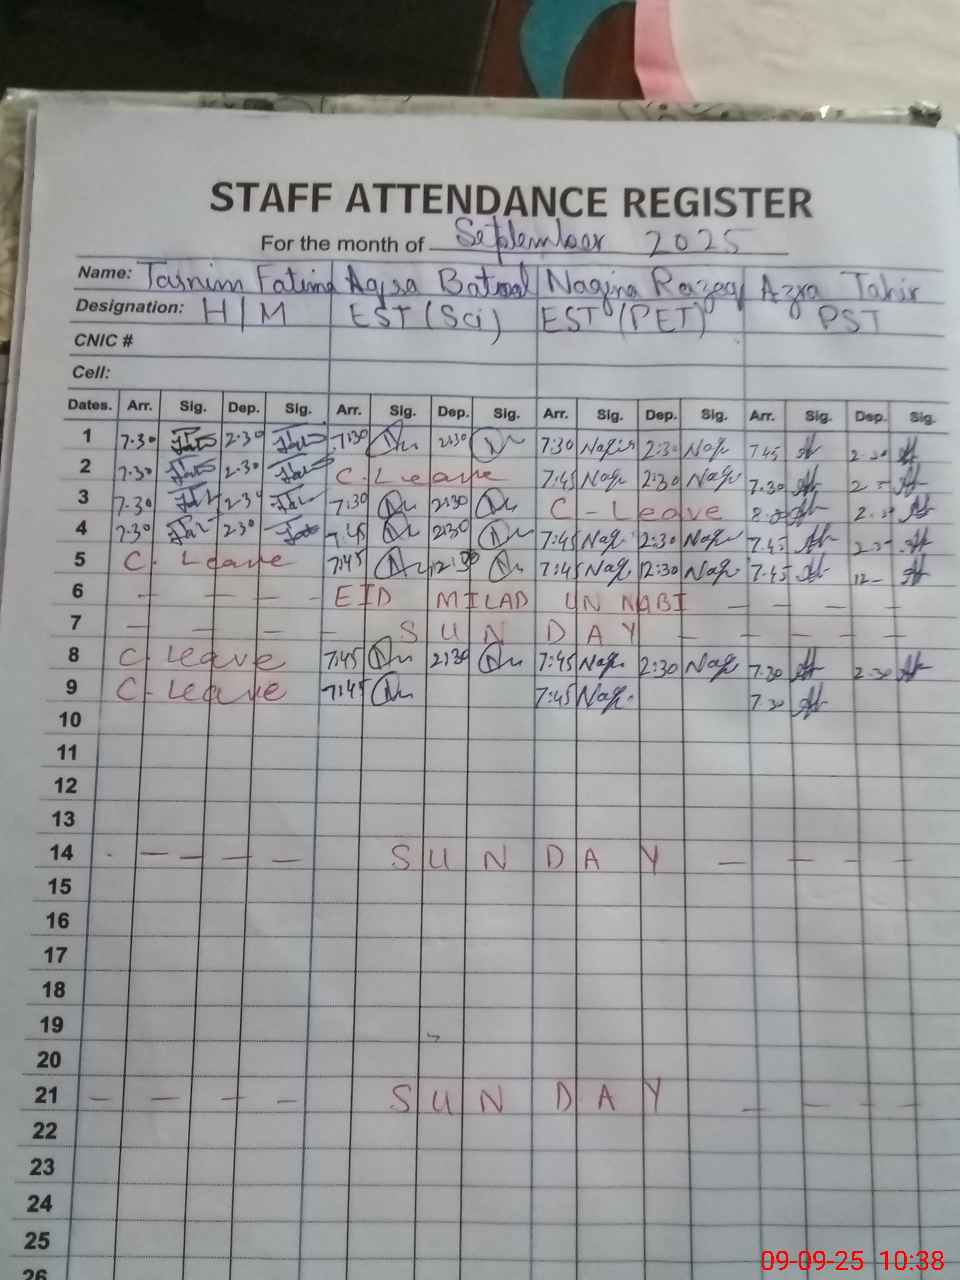 STAFF ATTENDANCE REGISTER
For the month of September 2025
Name: Tasnim Fatima Aqsa Batool Nagina Razaq Azra Tahir
Designation: H/M EST (Sci) EST (PET) PST
CNIC #
Cell:
Dates. Arr. Sig. Dep. Sig. Arr. Sig. Dep. Sig. Arr. Sig. Dep. Sig. Arr. Sig. Dep. Sig.
1 7.30 2.30 7:30 2:30 7:30 2:30 7.45 2.30
2 7.30 2.30 C. Leave 7:45 2:30 7.30
3 7.30 2.30 7:30 2:30 C - Leave
4 7.30 2.30 7:45 2:30 7:45 2:30 7.45
5 C. Leave 7:45 7:45 12:30 7.45 12-
6 - - - - - EID MILAD UN NABI - - - - -
7 - - - - - SUNDAY - - - - -
8 C. Leave 7:45 2:30 7:45 2:30 7.30 2.30
9 C. Leave 7:45 7:45 7.30
10
11
12
13
14 - - - - - SUNDAY - - - -
15
16
17
18
19
20
21 - - - - SUNDAY - - - -
22
23
24
25
26
09-09-25 10:38